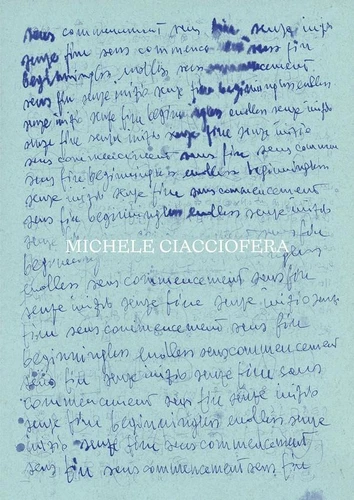 sans commencement sans fin senza inizio
senza fine sans commence sans fin
beginningless endless sans commencement
sans fin senza inizio senza fine beginningless endless
senza inizio senza fine beginningless endless senza inizio
senza fine senza inizio senza fine senza inizio
sans commencement sans fin sans commen
sans fin beginningless endless beginningless
senza inizio senza fine sans commencement
sans fin beginningless endless senza inizio
senza fine
MICHELE CIACCIOFERA
endless sans commencement sans fin
senza inizio senza fine senza inizio senza
fine sans commencement sans fin
beginningless endless sans commencement
sans fin senza inizio senza fine sans
commencement sans fin senza inizio
senza fine beginningless endless senza
inizio senza fine sans commencement
sans fin sans commencement sans fin